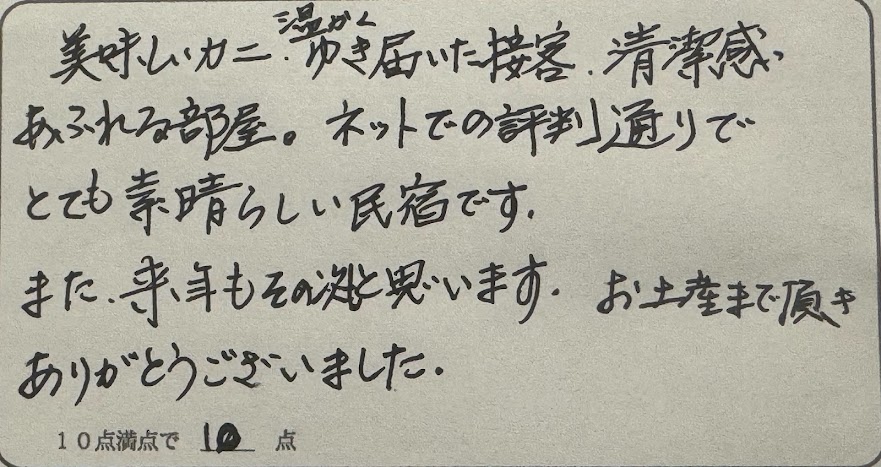 美味しいカニ、温かくゆき届いた接客、清潔感
あふれる部屋。ネットでの評判通りで
とても素晴らしい民宿です。
また、来年もその次もと思います。お土産まで頂き
ありがとうございました。
10点満点で 10 点